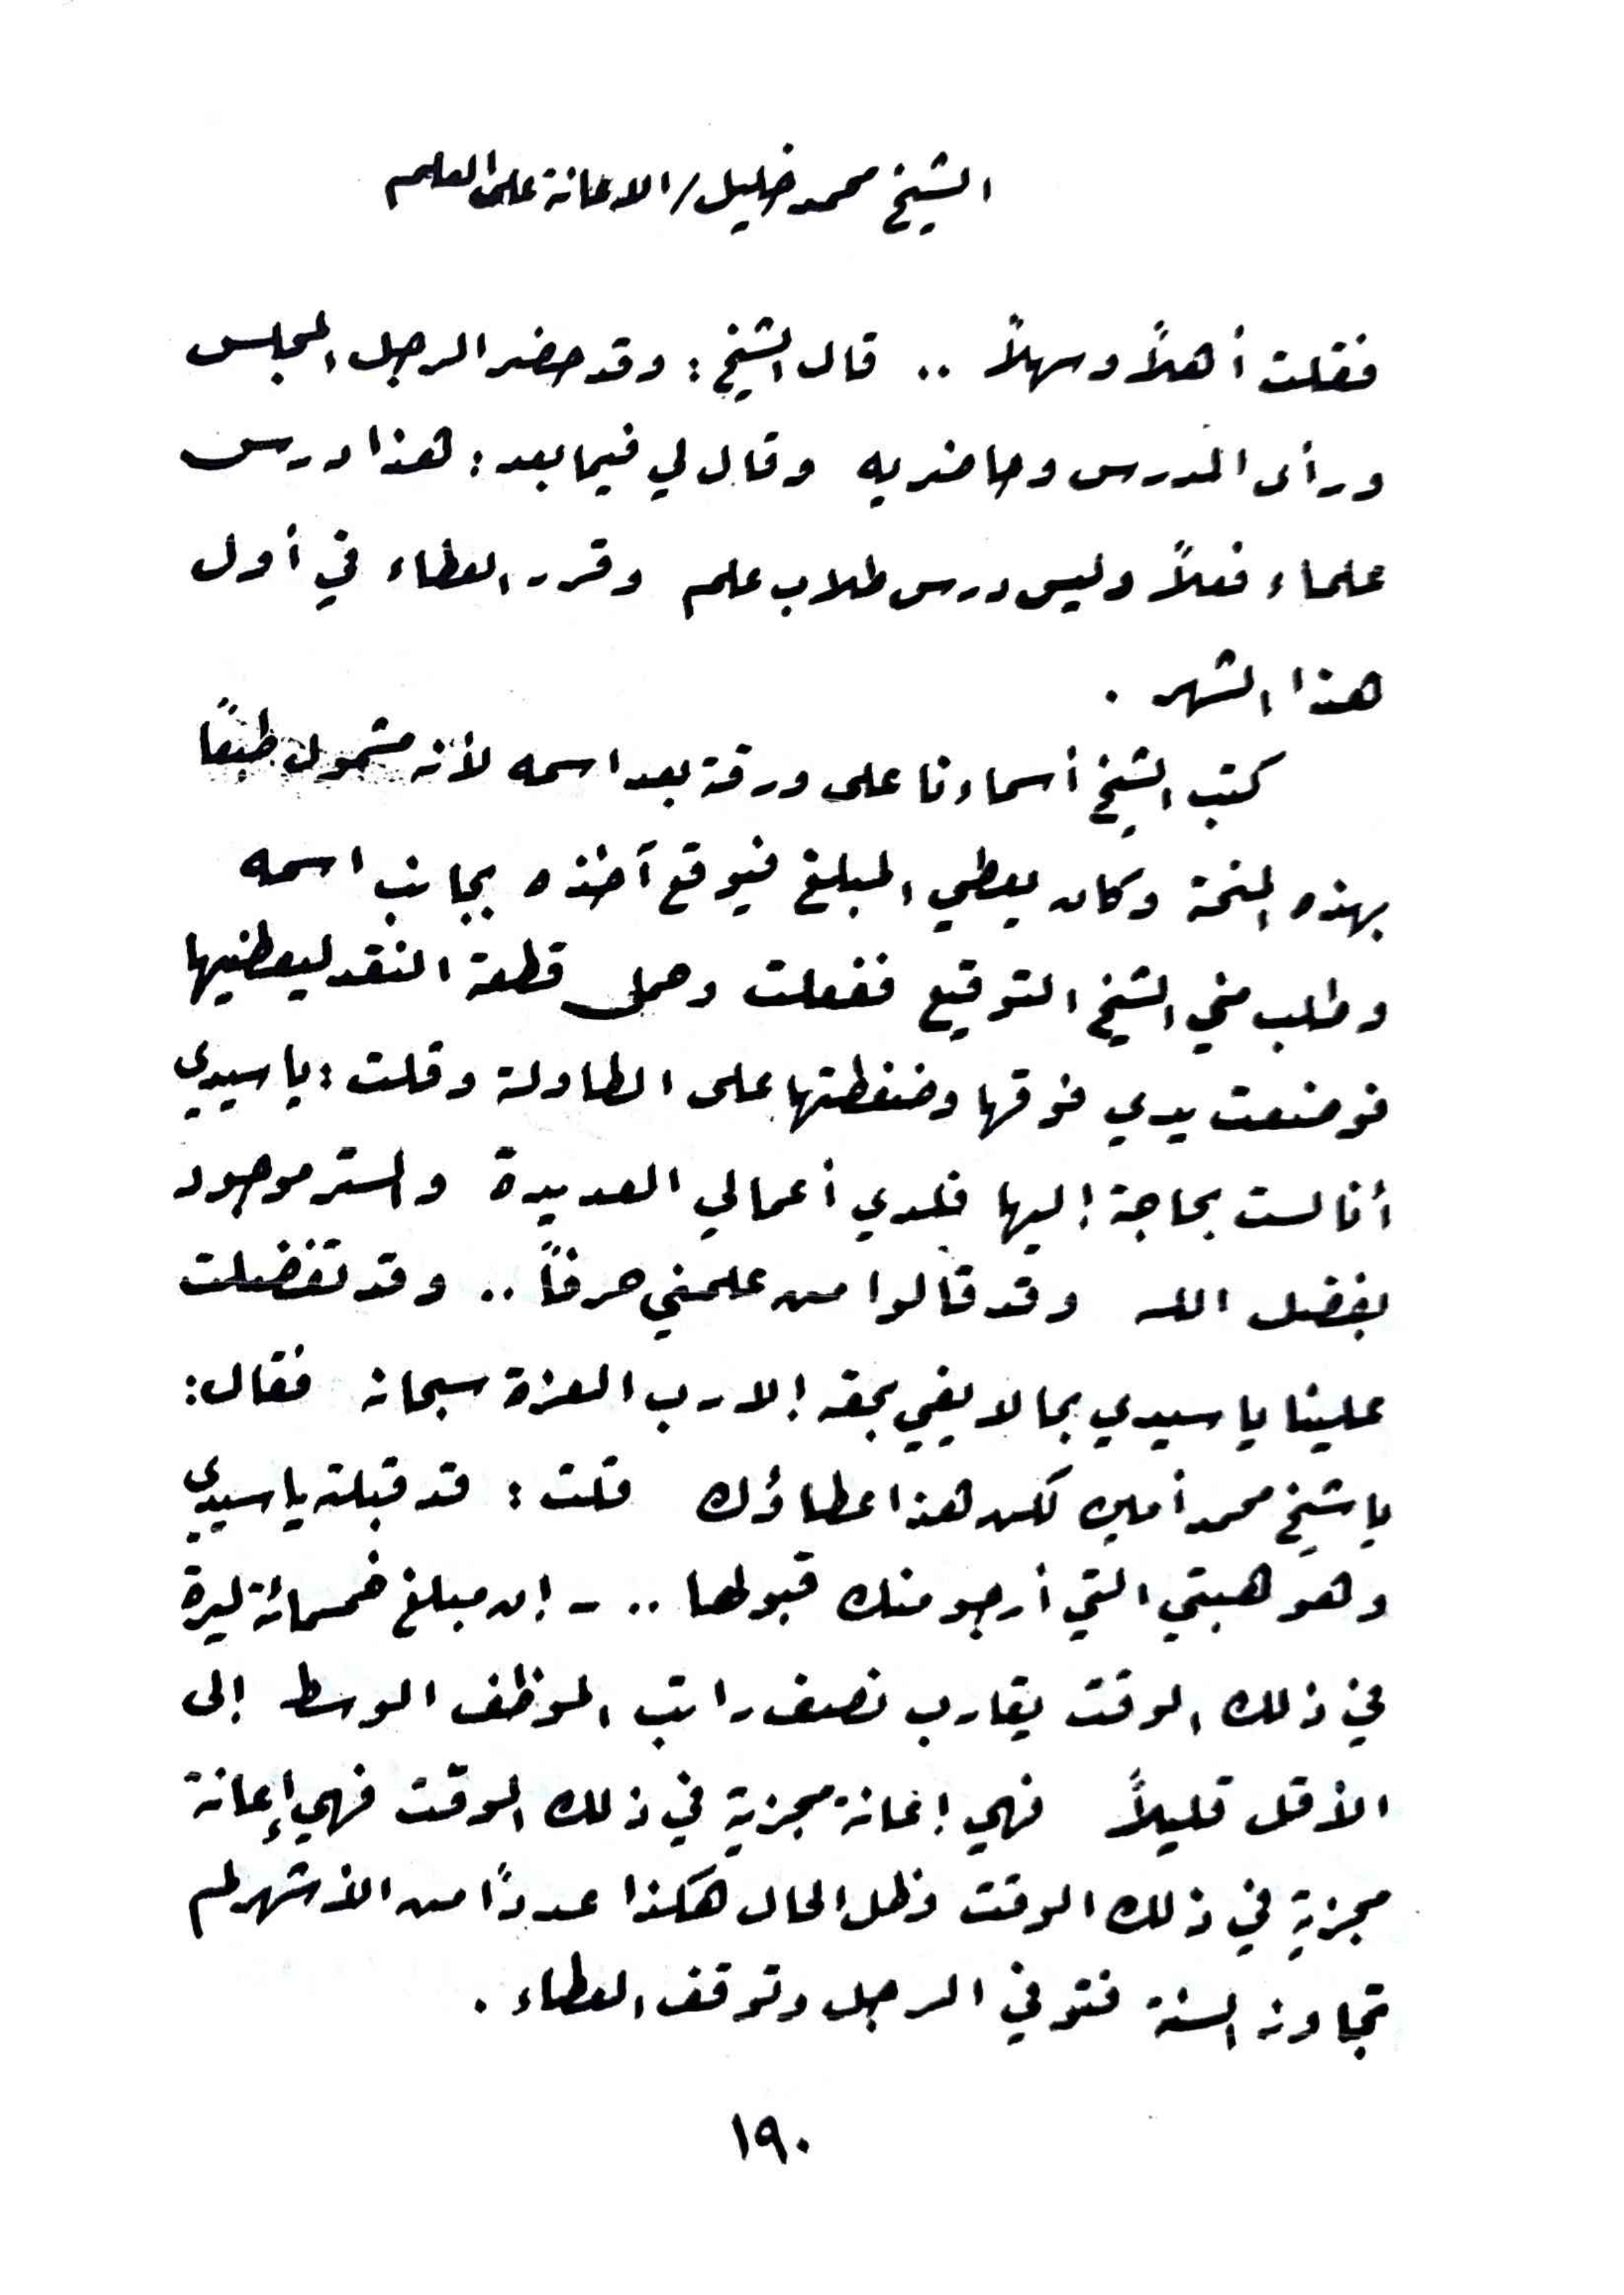 الشيخ محمد خليل / الاعانة على العلم
فقلت أهلاً وسهلاً .. قال الشيخ : وقد حضر الرجل المجلس
ورأى المدرس وحاضريه وقال لي فيما بعد : هذا درس
علماء فعلاً وليس درس طلاب علم وقرر العطاء في أول
هذا الشهر .
كتب الشيخ أسماءنا على ورقة بعد اسمه لأنه مشمول طبعًا
بهذه المنحة وكان يعطي المبلغ فيوقع آخذه بجانب اسمه
وطلب مني الشيخ التوقيع ففعلت وحمل قطعة النقد ليعطنيها
فوضعت يدي فوقها وضغطتها على الطاولة وقلت : يا سيدي
أنا لست بحاجة إليها فلدي أعمالي العديدة والستر موجود
بفضل الله وقد قالوا من علمني حرفاً .. وقد تفضلت
علينا يا سيدي بما لا يفي بحقه إلا رب العزة سبحانه فقال :
يا شيخ محمد أمين لكن هذا عطاؤك قلت : قد قبلته يا سيدي
وهو هبتي التي أرجو منك قبولها .. - إن مبلغ خمسمائة ليرة
في ذلك الوقت يقارب نصف راتب الموظف الوسط إلى
الأقل قليلاً فهي إعانة مجزية في ذلك الوقت فهي إعانة
مجزية في ذلك الوقت وظل الحال هكذا عددًا من الأشهر لم
تجاوز السنة فتوفي الرجل وتوقف العطاء .
١٩٠